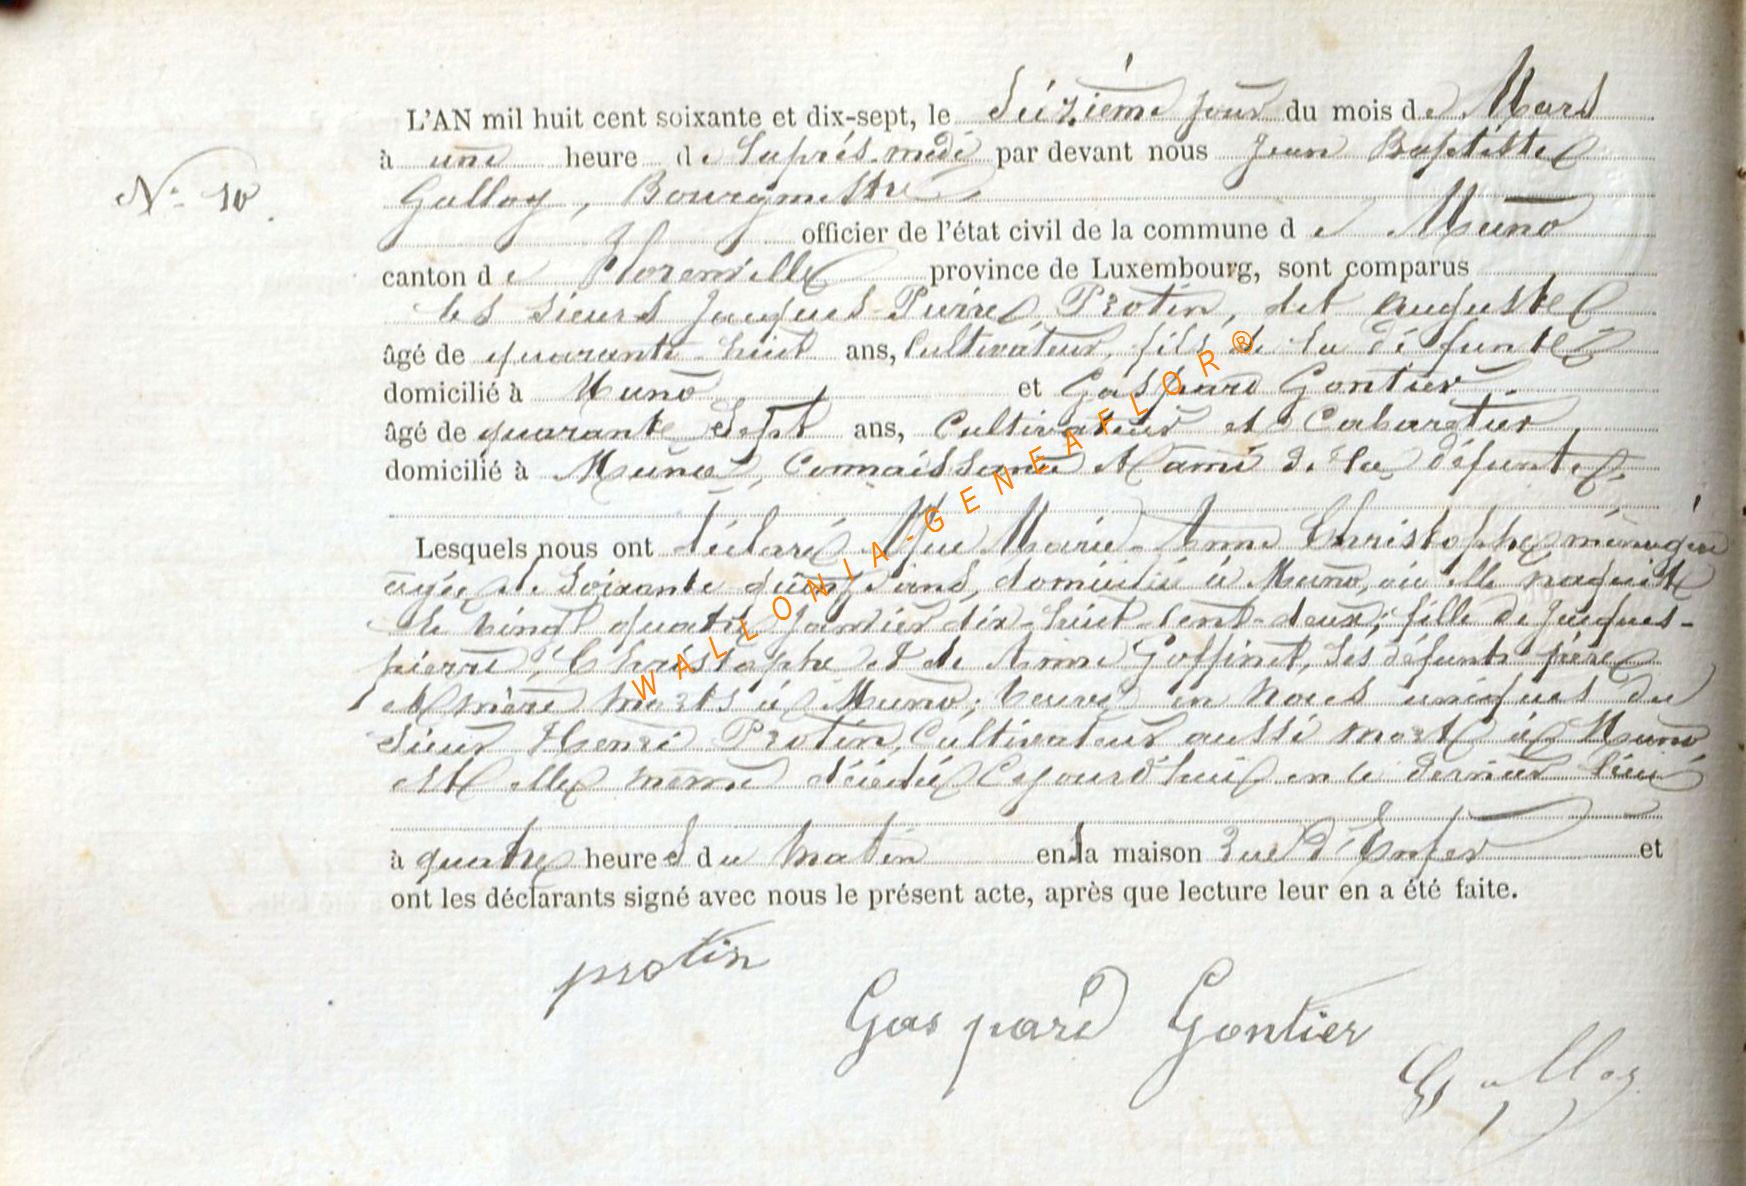 N° 10.
L'AN mil huit cent soixante et dix-sept, le Seizième jour du mois de Mars
à une heure de l'après-midi par devant nous Jean Baptiste
Galloy, Bourgmestre
officier de l'état civil de la commune de Muno
canton de Florenville province de Luxembourg, sont comparus
les sieurs Jacques-Pierre Protin, dit Auguste
âgé de quarante-huit ans, Cultivateur, fils de la défunte
domicilié à Muno et Gaspard Gontier.
âgé de quarante Sept ans, Cultivateur et Cabaretier,
domicilié à Muno, Connaissance et ami de la défunte,
Lesquels nous ont déclaré Que Marie-Anne Christophe, ménagère
agée de Soixante quinze ans, domiciliée à Muno, où elle naquit
le vingt quatre Janvier dix-huit-Cent-deux; fille de Jacques-
pierre, Christophe et de Anne Goffinet, ses défunts père
et mère morts à Muno; veuve en noces uniques du
Sieur Henri Protin, Cultivateur aussi mort à Muno
et elle même décédée Cejourd'hui en ce dernier lieu
à quatre heures du matin en la maison rue d'Enfer et
ont les déclarants signé avec nous le présent acte, après que lecture leur en a été faite.
protin
Gaspard Gontier
Galloy
WALLONIA-GENEAFLOR®